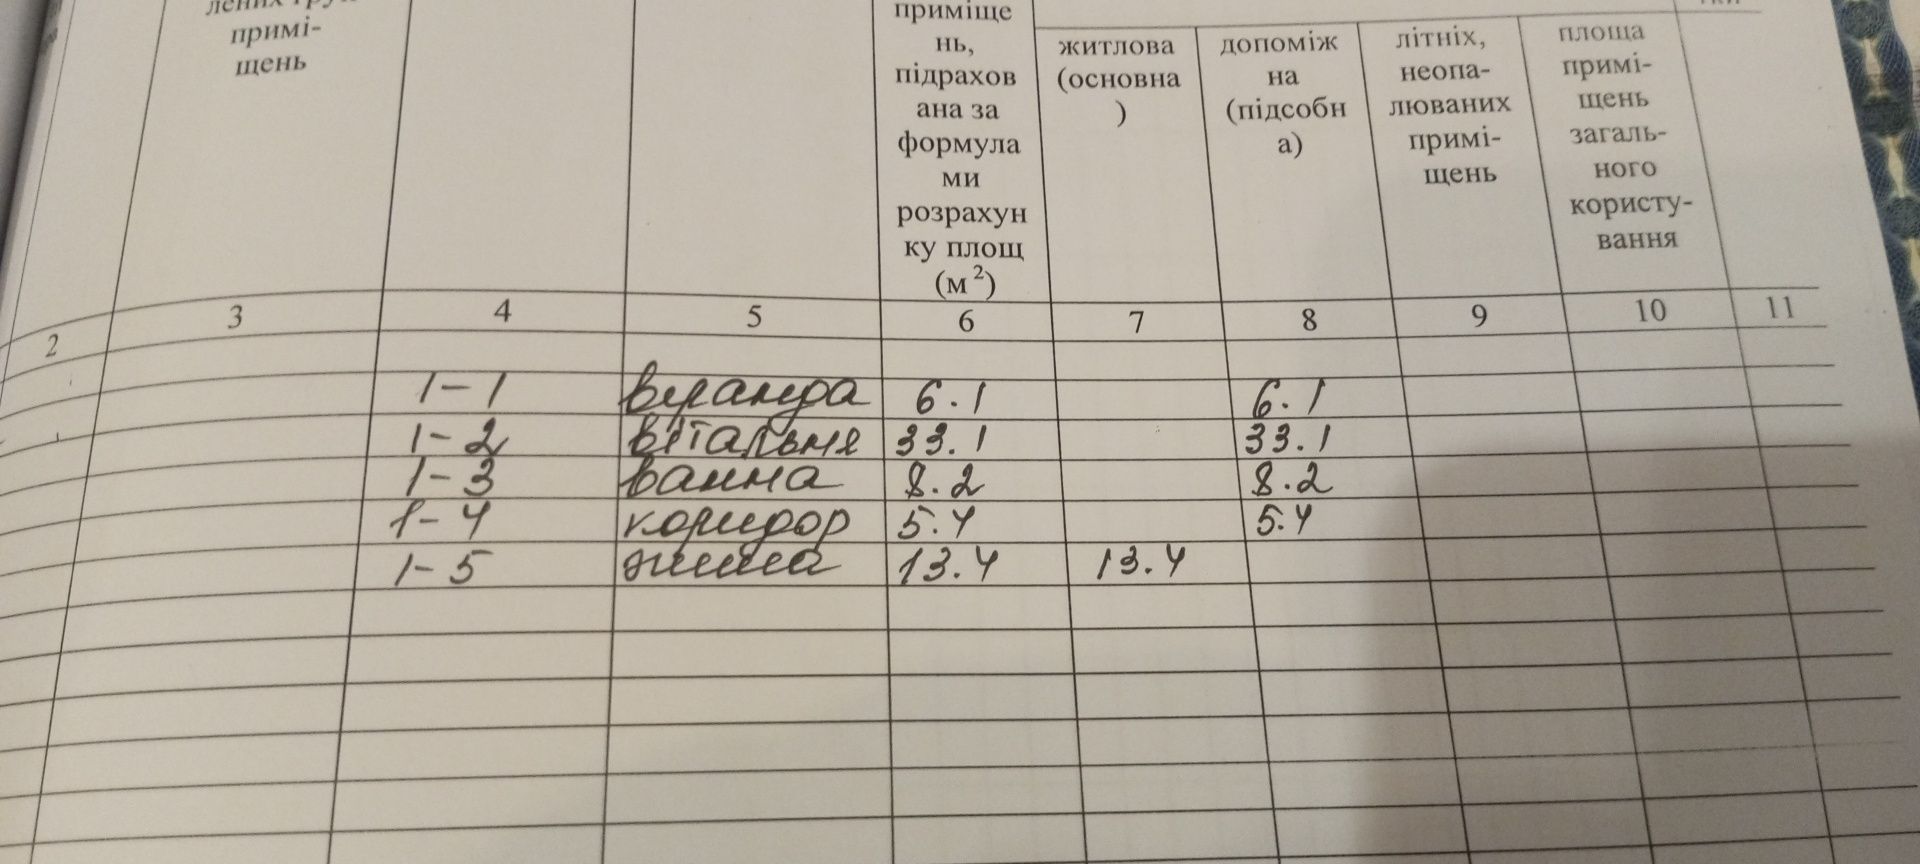 примі-
щень
приміще
нь,
підрахов
ана за
формула
ми
розрахун
ку площ
(м²)
житлова
(основна
)
допоміж
на
(підсобн
а)
літніх,
неопа-
люваних
примі-
щень
площа
примі-
щень
загаль-
ного
користу-
вання
2 3 4 5 6 7 8 9 10 11
1-1 веранда 6.1 6.1
1-2 вітальня 33.1 33.1
1-3 ванна 8.2 8.2
1-4 коридор 5.4 5.4
1-5 житла 13.4 13.4